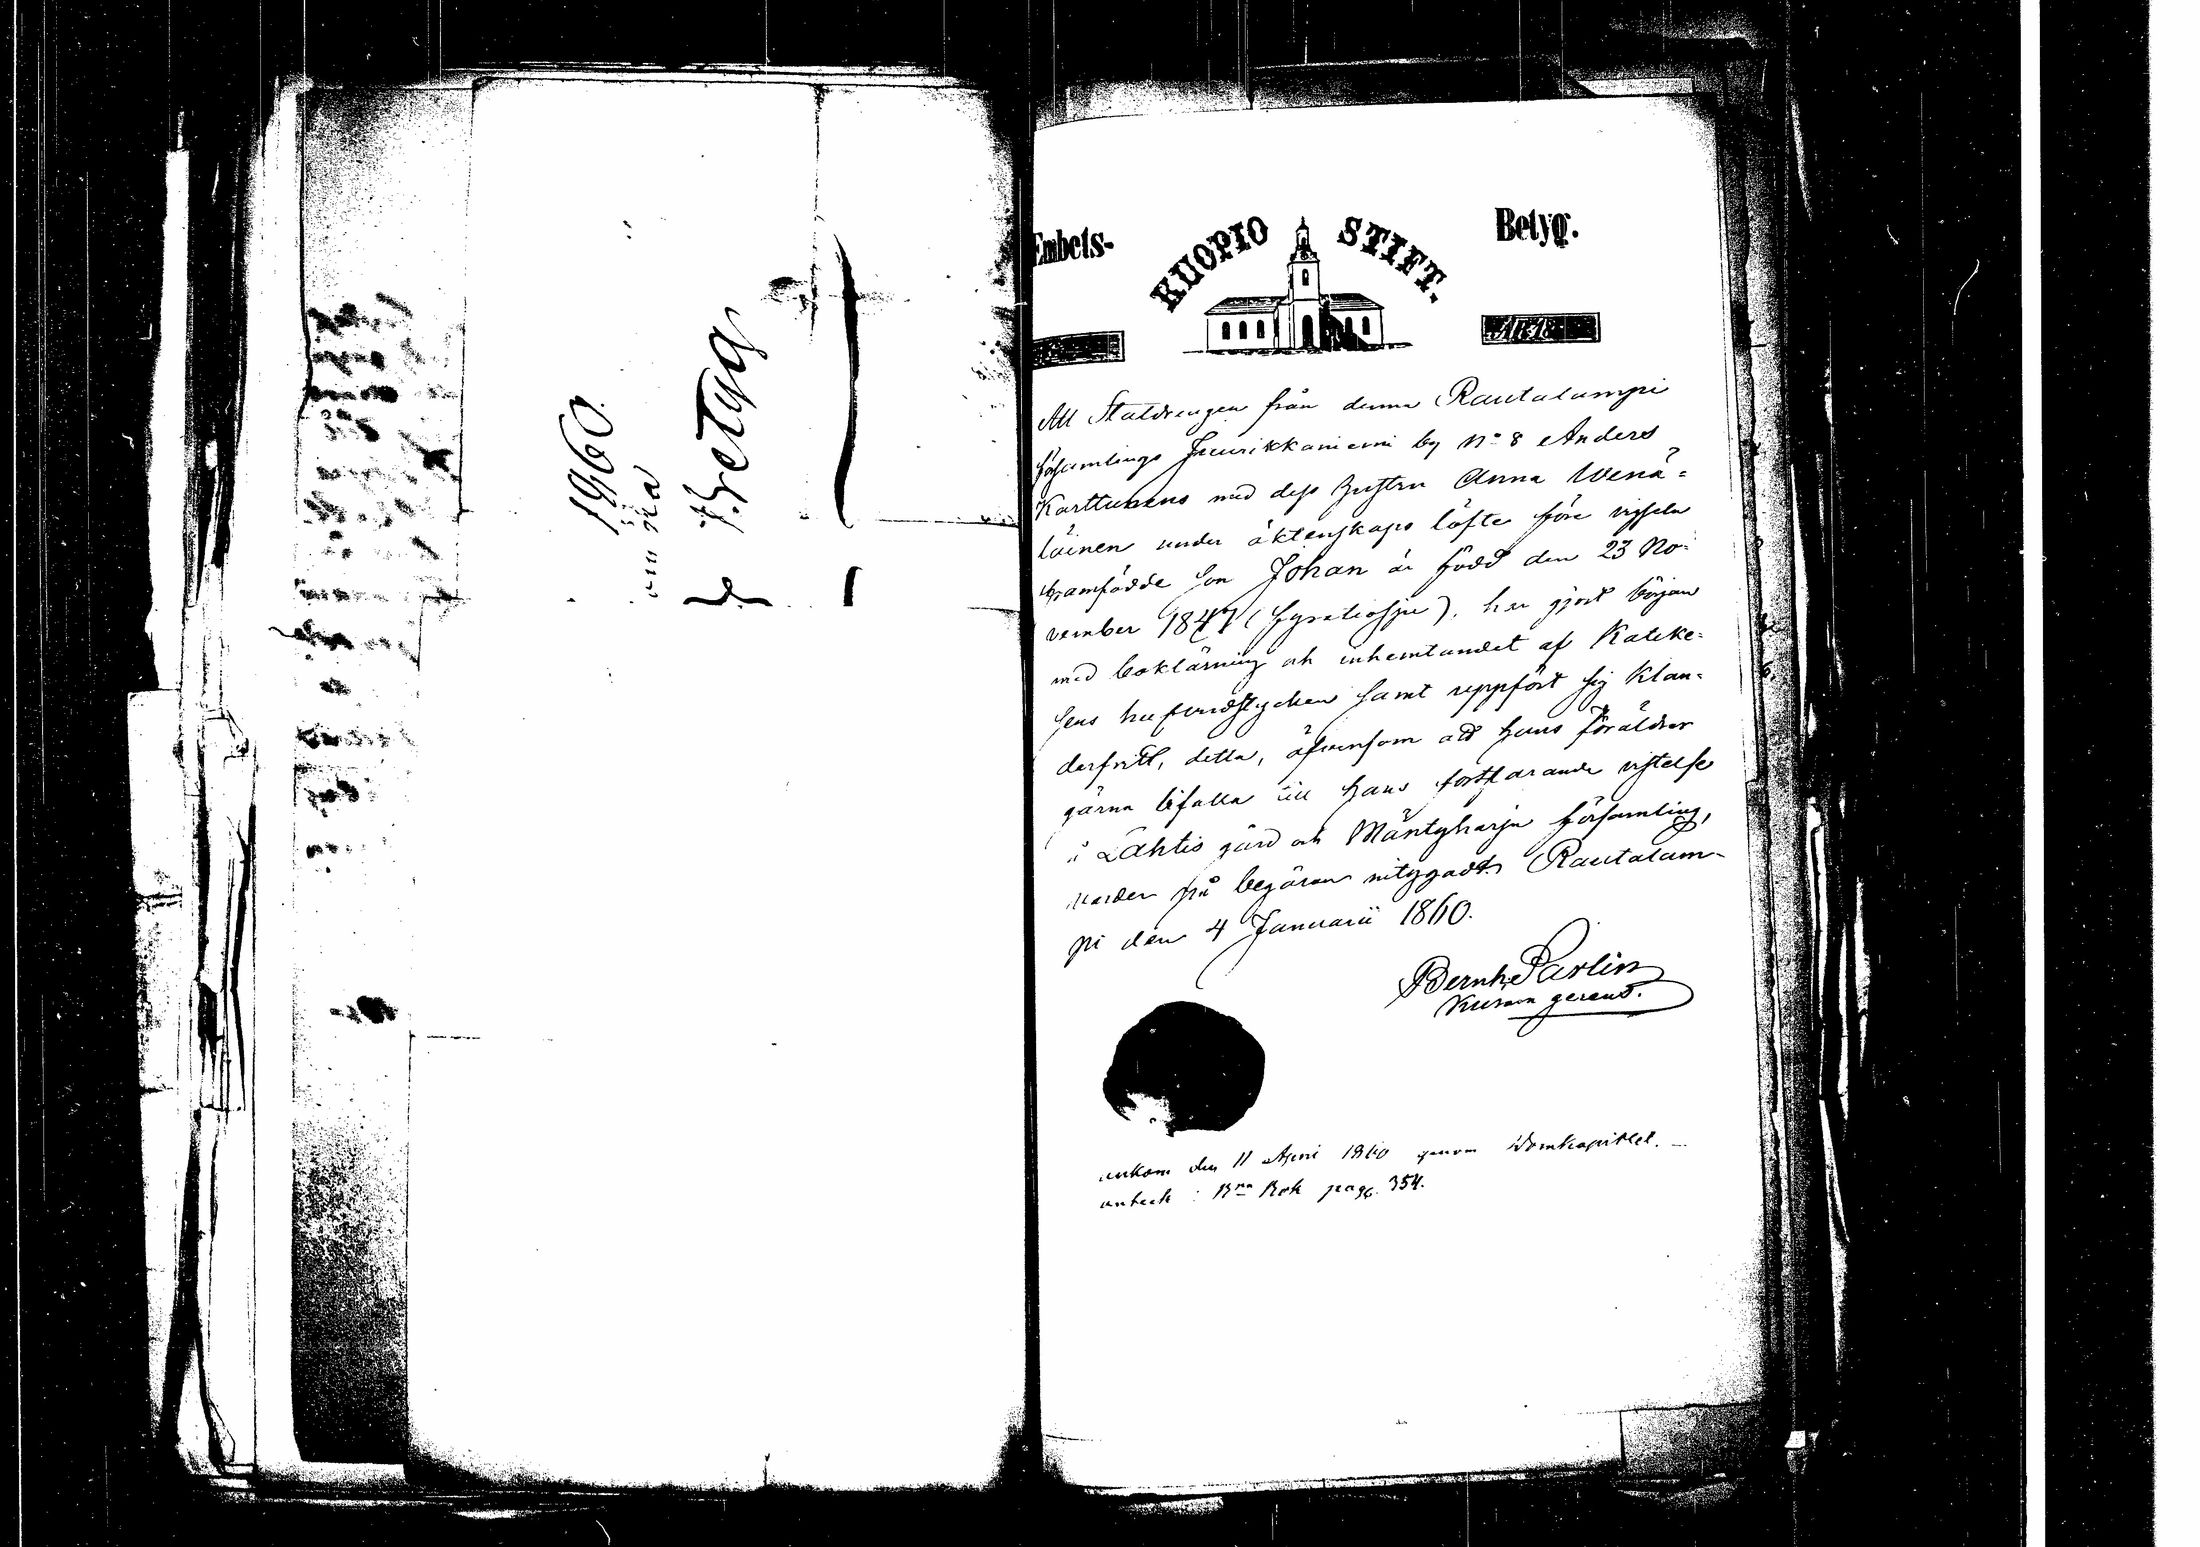 1960.
Betyg
Embets-
KUOPIO STIFT.
Betyg.
Att Staldrengen från denna Rautalampi
församlings by No 8 Anders
Karttunens med dess hustru Anna Wenä-
läinen under äktenskaps löfte före vigseln
framfödde son Johan är född den 23 No-
vember 1847 ( ), har gjort början
med boklärning och inhemtandet af Kateke-
sens hufvudstycken samt uppfört sig klan-
derfritt, detta, äfvensom att hans föräldrar
gärna bifalla till hans fortfarande vistelse
i Lahtis gård och Mäntyharju församling,
warder på begäran intygadt. Rautalam-
pi den 4 Januarii 1860.
Bernh. Sarlin
Curam gerens.
ankom den 11 April 1860 genom Domkapitlet. -
anteck i Bok pag. 354.